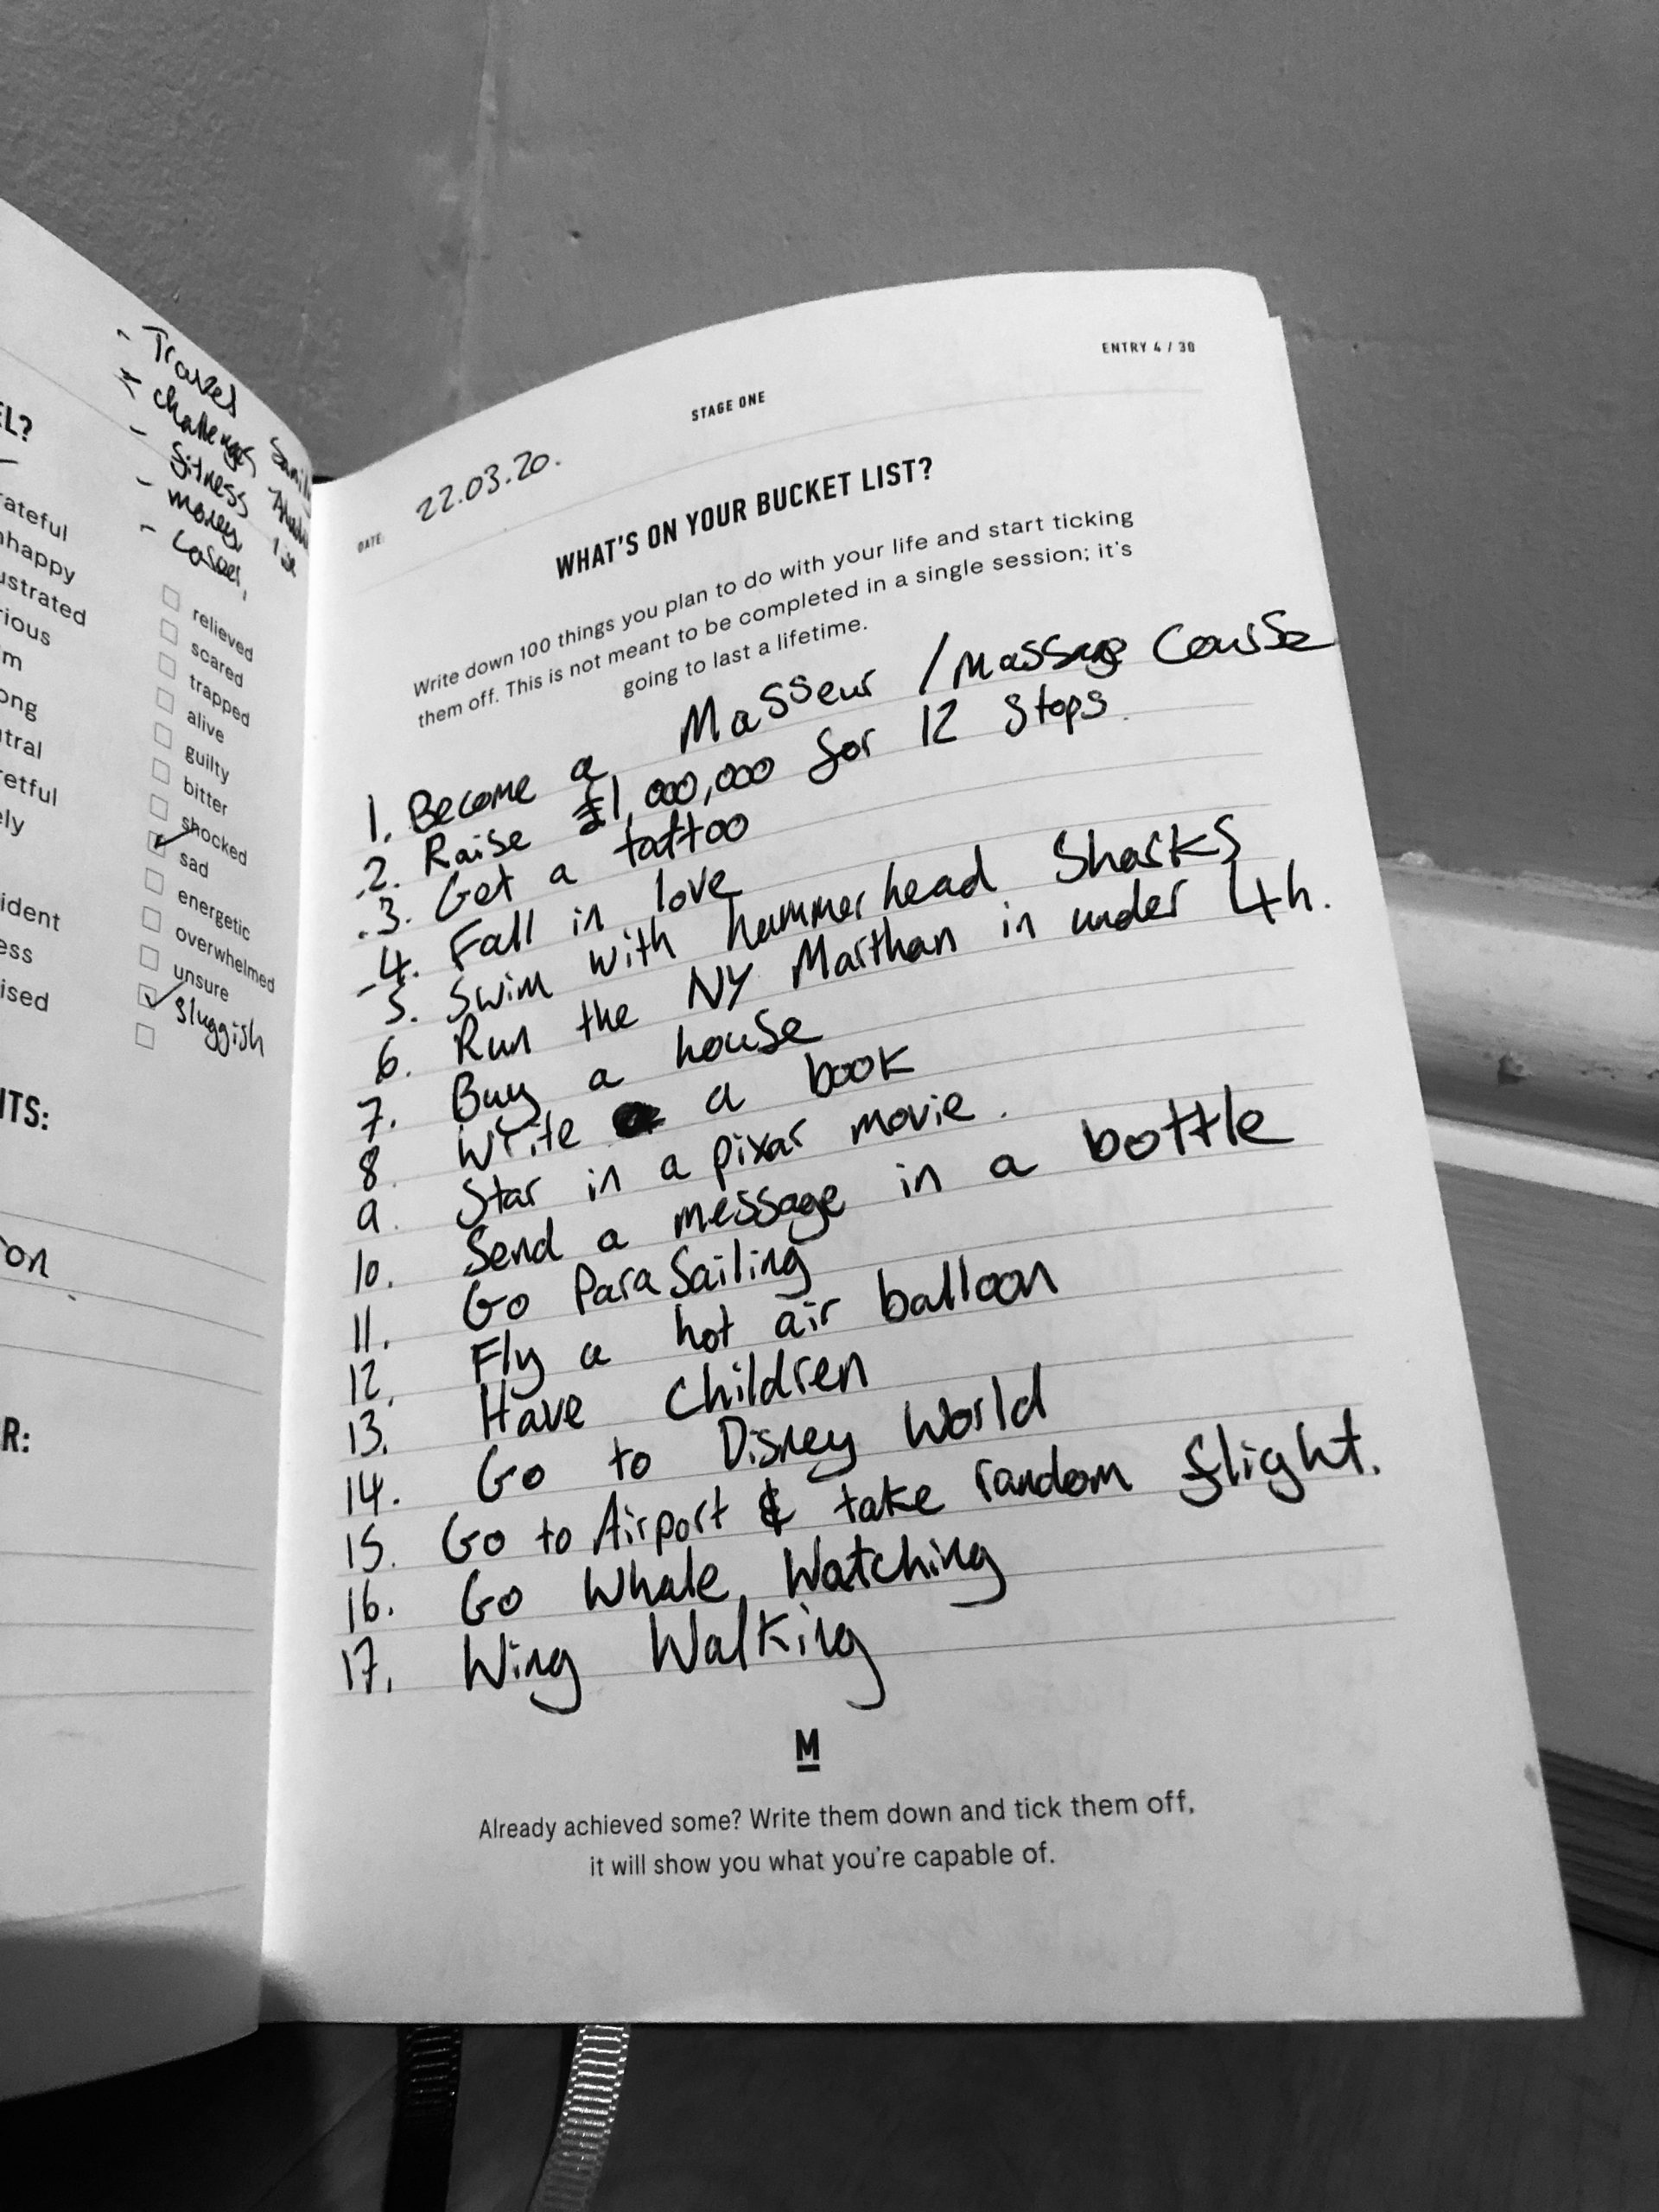 - Travel
- challenges
- fitness
- money
EL?
ateful
nhappy
ustrated
rious
m
ong
utral
retful
ely
ident
ess
ised
relieved
scared
trapped
alive
guilty
bitter
shocked
sad
energetic
overwhelmed
unsure
sluggish
ITS:
on
R:
ENTRY 4 / 30
STAGE ONE
DATE: 22.03.20.
WHAT'S ON YOUR BUCKET LIST?
Write down 100 things you plan to do with your life and start ticking
them off. This is not meant to be completed in a single session; it's
going to last a lifetime.
1. Become a Masseur / Massage Course
2. Raise £1,000,000 for 12 Stops.
3. Get a tattoo
4. Fall in love
5. Swim with hammerhead Sharks
6. Run the NY Marthan in under 4h.
7. Buy a house
8. Write a book
9. Star in a pixar movie.
10. Send a message in a bottle
11. Go Para Sailing
12. Fly a hot air balloon
13. Have Children
14. Go to Disney World
15. Go to Airport & take random flight.
16. Go Whale Watching
17. Wing Walking
M
Already achieved some? Write them down and tick them off,
it will show you what you're capable of.